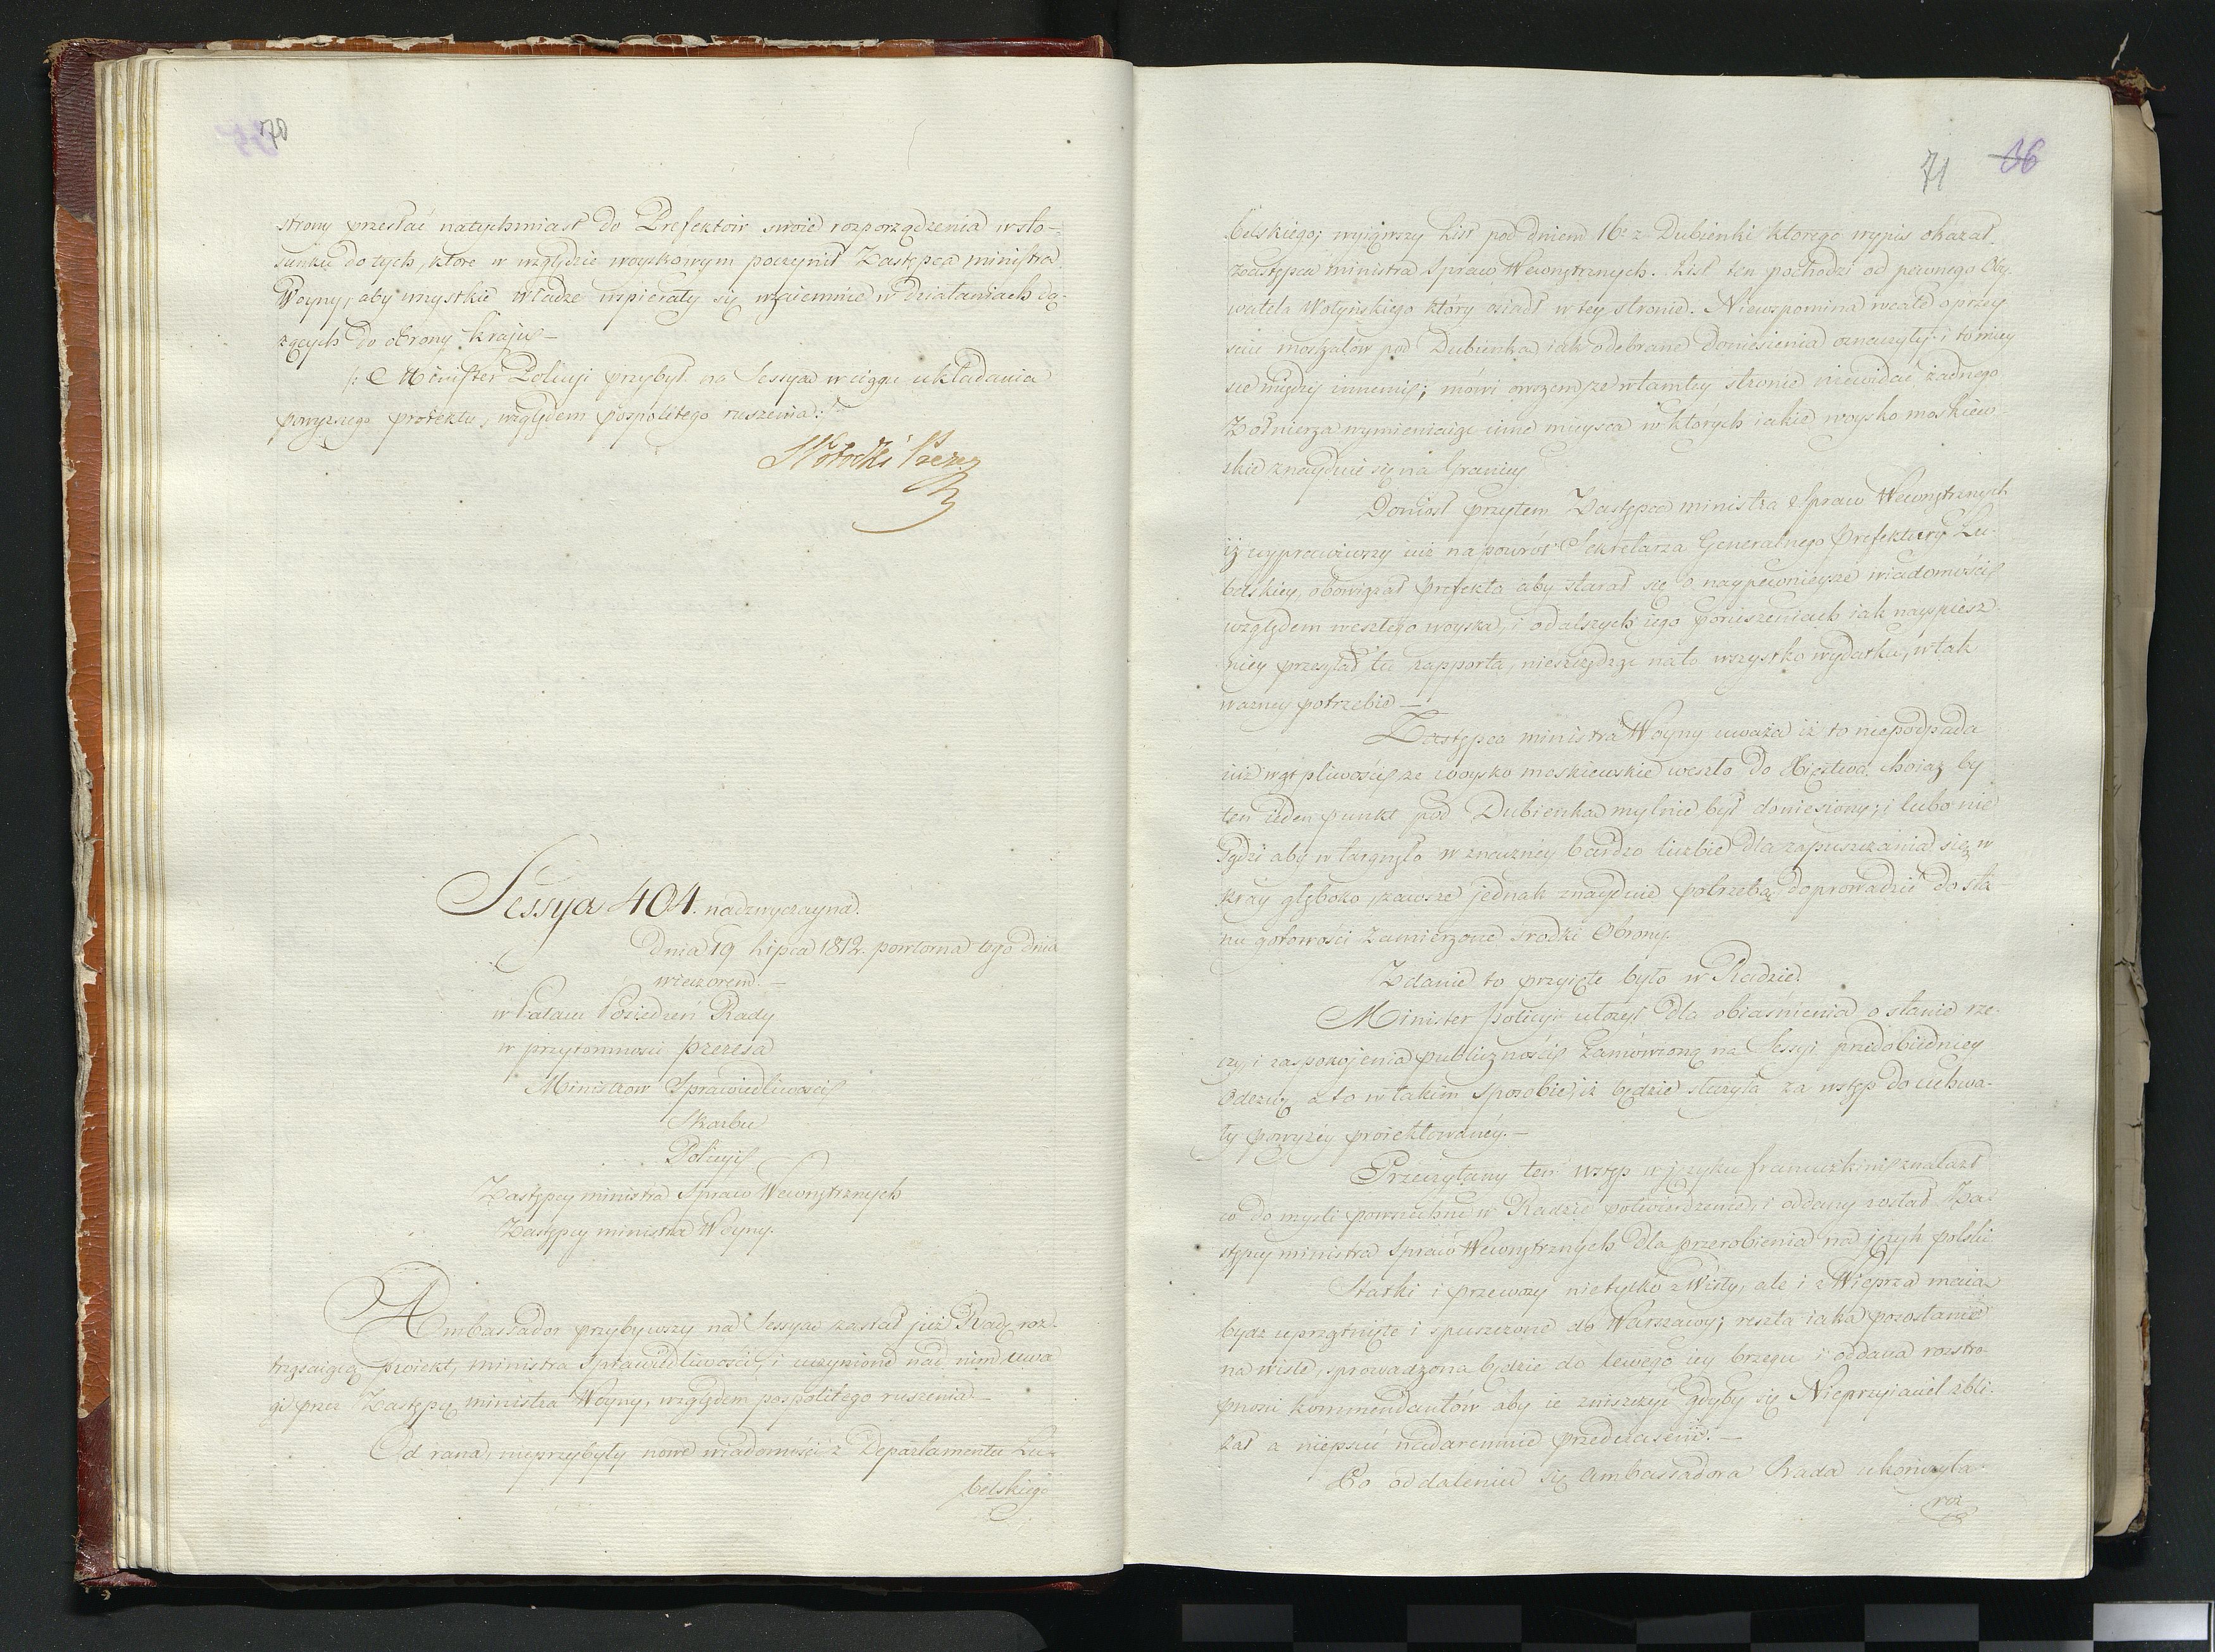 70
strony przesłać natychmiast do Prefektów swoie rozporządzenia w sto-
sunku do tych, które w względzie woyskowym poczynił Zastępca ministra
Woyny, aby wszystkie władze wspierały się wzaiemnie w działaniach dą-
żących do obrony kraju —
/: Minister Policyi przybył na Sessyą w ciągu układania
powyższego proiektu, względem pospolitego ruszenia :/
SKPotocki Prezes
Sessya 404. nadzwyczayna.
Dnia 19 Lipca 1812. powtorna tego dnia
wieczorem. —
w Pałacu Posiedzeń Rady
w przytomności prezesa
Ministrow Sprawiedliwości
Skarbu
Policyi
Zastępcy ministra Spraw Wewnętrznych
Zastępcy ministra Woyny.
Ambassador przybywszy na Sessyą zastał już Radę roz-
trząsaiącą proiekt, ministra Sprawiedliwości, i uczynione nad nim uwa
gi przez Zastępcę ministra Woyny, względem pospolitego ruszenia —
Od rana, nieprzybyły nowe wiadomości z Departamentu Lu-
belskiego
71 36
belskiego; wyiąwszy List pod dniem 16. z Dubienki którego wypis okazał
Zastępca ministra Spraw Wewnętrznych. List ten pochodzi od pewnego Oby
watela Wołyńskiego który osiadł w tey stronie. Niewspomina wcale o przey
ściu moskalów pod Dubienką iak odebrane doniesienia oznaczyły i to miey
sce między innemi; mówi owszem ze w tamtey stronie niewidać żadnego
Żołnierza wymieniaiąc inne mieysca w ktorych iakie woysko moskiew-
skie znayduie się na Granicy
Doniosł przytem Zastępca ministra Spraw Wewnętrznych
iż wyprawiwszy iuż na powrót Sekretarza Generalnego Prefektury Lu-
belskiey, obowiązał Prefekta aby starał się o naypewnieysze wiadomości
względem weszłego woyska, i o dalszych iego poruszeniach iak nayspiesz-
niey przesyłał tu rapporta, nieszczędząc na to wszystko wydatku, w tak
wazney potrzebie —
Zastępca ministra Woyny uważa iż to niepodpada
iuż wątpliwości ze woysko moskiewskie weszło do Xięztwa, choiaż by
ten ieden punkt pod Dubienką mylnie był doniesiony; i lubo nie
sądzi aby wtargnęło w znaczney bardzo liczbie dla zapuszczania się w
kray głęboko, zawsze jednak znayduie potrzebą doprowadzić do sta
nu gotowości zamierzone srodki Obrony.
Zdanie to przyięte było w Radzie.
Minister policyi ułożył dla obiaśnienia o stanie rze-
czy i zaspokojenia publiczności zamówioną na Sessyi przedobiedniey
Odezwę, a to w takim sposobie, iż będzie służyła za wstęp do uchwa-
ły powyżey proiektowaney. —
Przeczytany ten wstęp w języku francuzkim znalazł
co do myśli powszechne w Radzie potwierdzenie, i oddany został Za-
stępcy ministra Spraw Wewnętrznych dla przerobienia na język polski
Statki i przewozy nietylko z Wisły, ale i z Wieprza maią
bydz uprzątnięte i spuszczone do Warszawy; reszta iaka pozostanie
na wiśle, sprowadzona będzie do lewego iey brzegu i oddana rozstro-
pności kommendantów aby ie zniszczyć gdyby się Nieprzyiaciel zbli-
żał a niepsuć nadaremnie przedwcześnie. —
Po oddaleniu się Ambassadora Rada ukończyła
roz